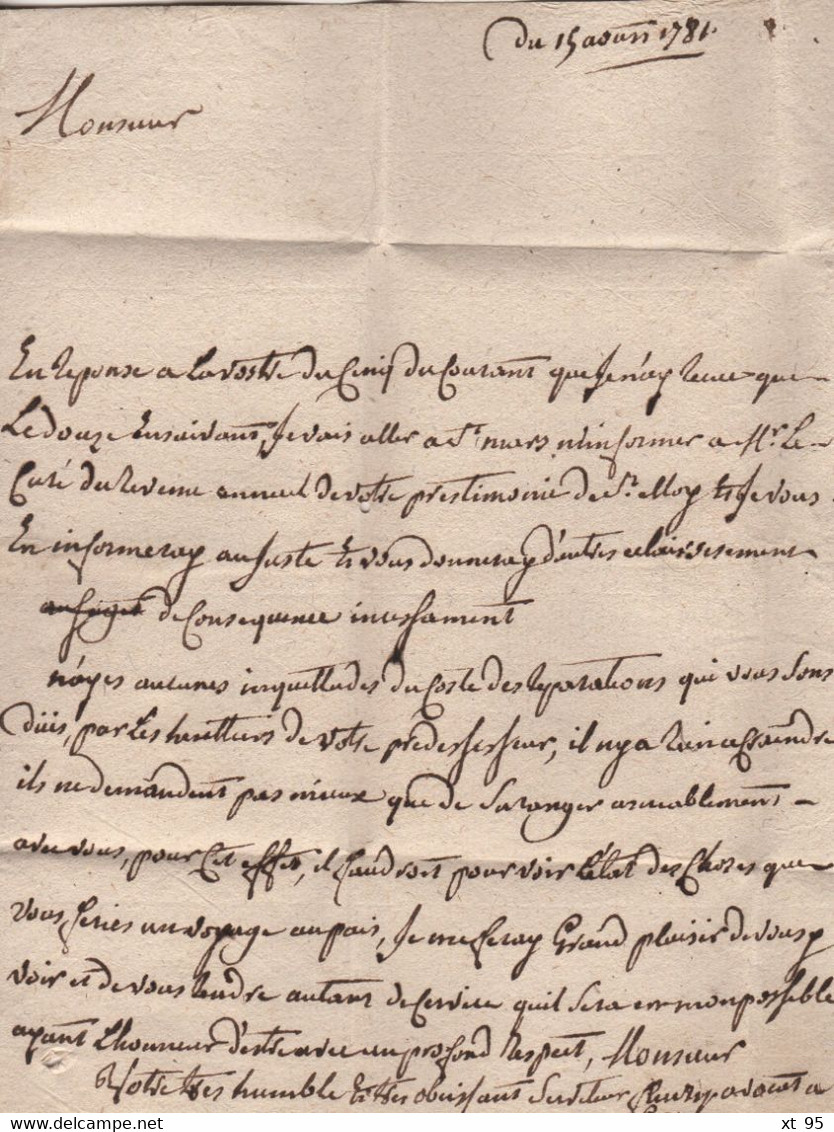 du 15 aoust 1781.
Monsieur
En Reponse a La vostre du Cinq du Courant que Je n'ay Recue que
Le douze Ensuivant, Je vais aller a St mars m'informer a Mr. Le
Curé du Revenu annuel de votre prestimonie de St. Eloy Et Je vous
En informeray au Juste Et vous donneray d'autres eclaircissement
de Consequence incessament
n'ayes aucunes inquettudes du Costé des Reparations qui vous sont
düis, par Les heritiers de votre predessesseur, il n'y a Rien a Craindre
ils ne demandent pas mieux que de S'aranger amiablement
avec vous, pour Cet effet, il faudroit pour voir L'état des Choses que
vous feries un voyage au païs, Je me feray Grand plaisir de vous y
voir et de vous Rendre autant de Service qu'il Sera en mon possible
ayant L'honneur d'estre avec un profond Respect, Monsieur
Votre tres humble Et tres obeissant Serviteur avocat a
xt 95